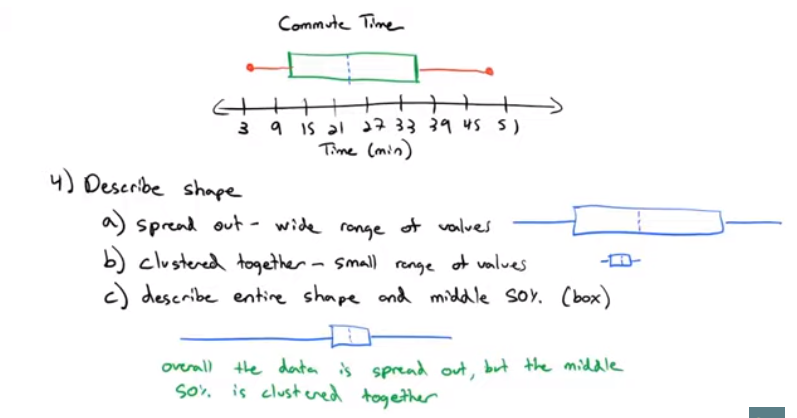 Commute Time
3 9 15 21 27 33 39 45 51
Time (min)
4) Describe shape
a) spread out - wide range of values
b) clustered together - small range of values
c) describe entire shape and middle 50%. (box)
overall the data is spread out, but the middle
50% is clustered together